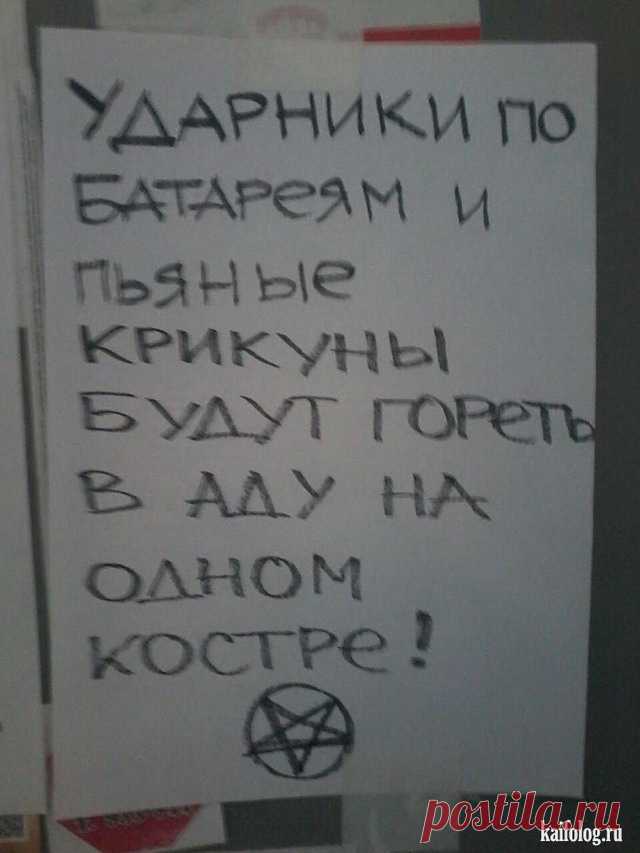 УДАРНИКИ ПО
БАТАРЕЯМ И
ПЬЯНЫЕ
КРИКУНЫ
БУДУТ ГОРЕТЬ
В АДУ НА
ОДНОМ
КОСТРЕ!
postila.ru
kaifolog.ru